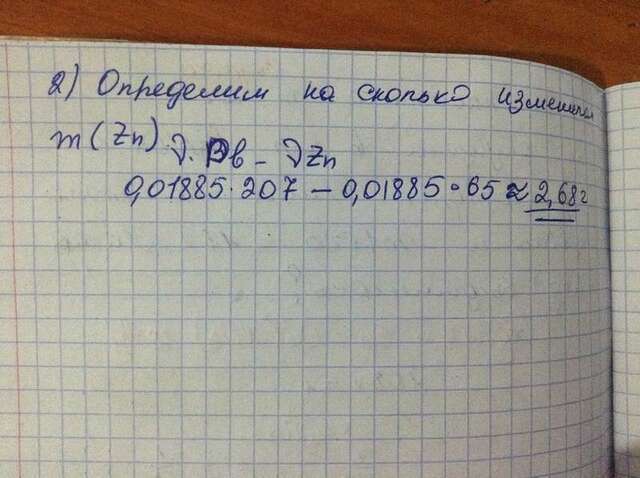 2) Определим на сколько изменится
m(Zn) ∂. Pb - ∂Zn
0,01885·207 — 0,01885·65 ≈ 2,68г